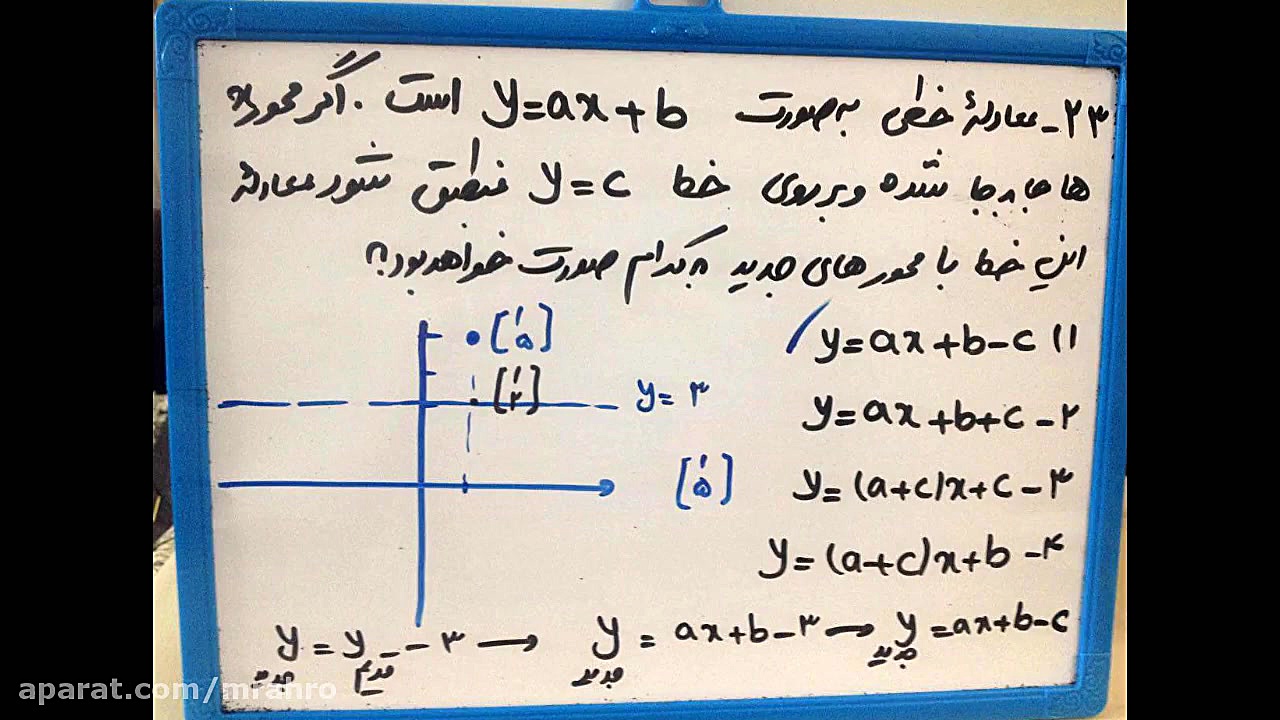 ۲۳- معادلهٔ خطی به صورت y=ax+b است. اگر محور x
ها جابه‌جا شده و بر روی خط y=c منطبق شود معادلهٔ
این خط با محورهای جدید به کدام صورت خواهد بود؟
y=ax+b-c (۱
y=ax+b+c -۲
y=(a+c)x+c -۳
y=(a+c)x+b -۴
[۱ ۵]
[۱ ۲]
y=۳
[۱ ۵]
y جدید = y قدیم - ۳ → y جدید = ax+b-۳ → y جدید = ax+b-c
aparat.com/mranro